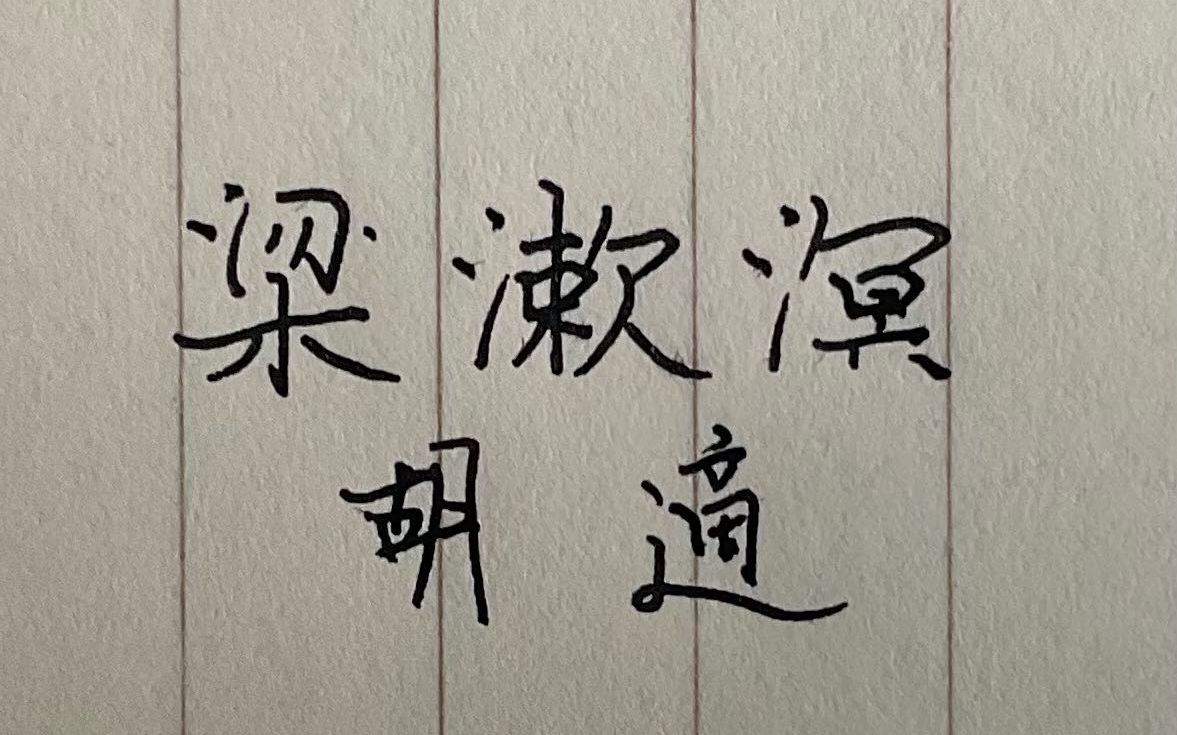 梁漱溟
胡適